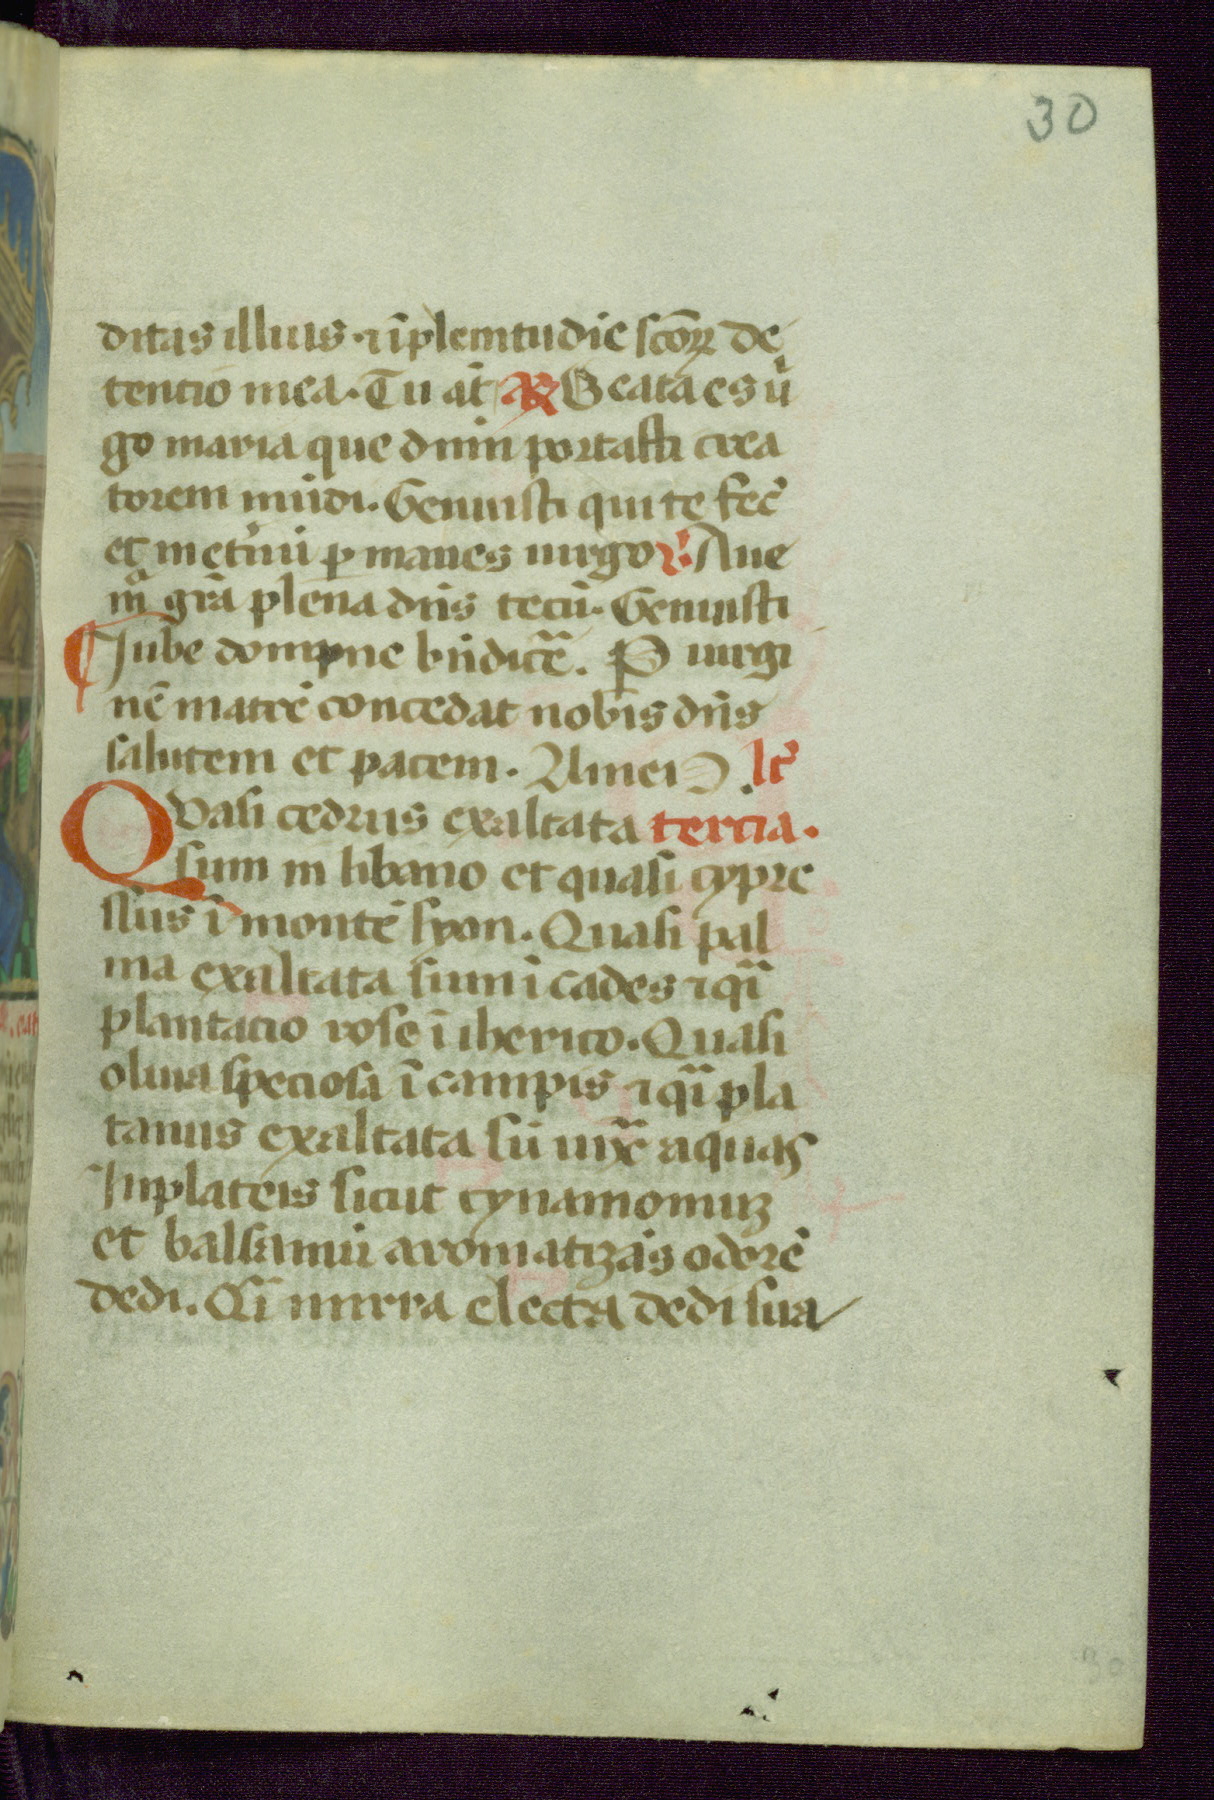 30
ditas illius ⁊ ī plenitudīe scōꝝ de
tencio mea. Tu aūt ℟ Beata es vͥ
go maria que dnm̄ portasti crea
torem mūdi. Genuisti qui te fecꝰ
et in et̓nū ꝑmanes uirgo ℣. Aue
mͣ gr̄a plena dn̄s tecū. Genuisti
Jube dompne bn̄dicē̄. P uirgi
nē matrē concedat nobis dn̄s
salutem et pacem. Amen lc̄
Quasi cedrus exaltata tercia.
sum in libano et quasi cypre
ssus ī monte syon. Quasi pal
ma exaltata sum ī cades ⁊ qͣi
plantacio rose ī iherico. Quasi
oliua speciosa ī campis ⁊ qͣi pla
tanus exaltata sū iuxͣ aquas
In plateis sicut cynamomuꝫ
et balsamū aromatizās odorē
dedi. Qͣi mirra electa dedi sua